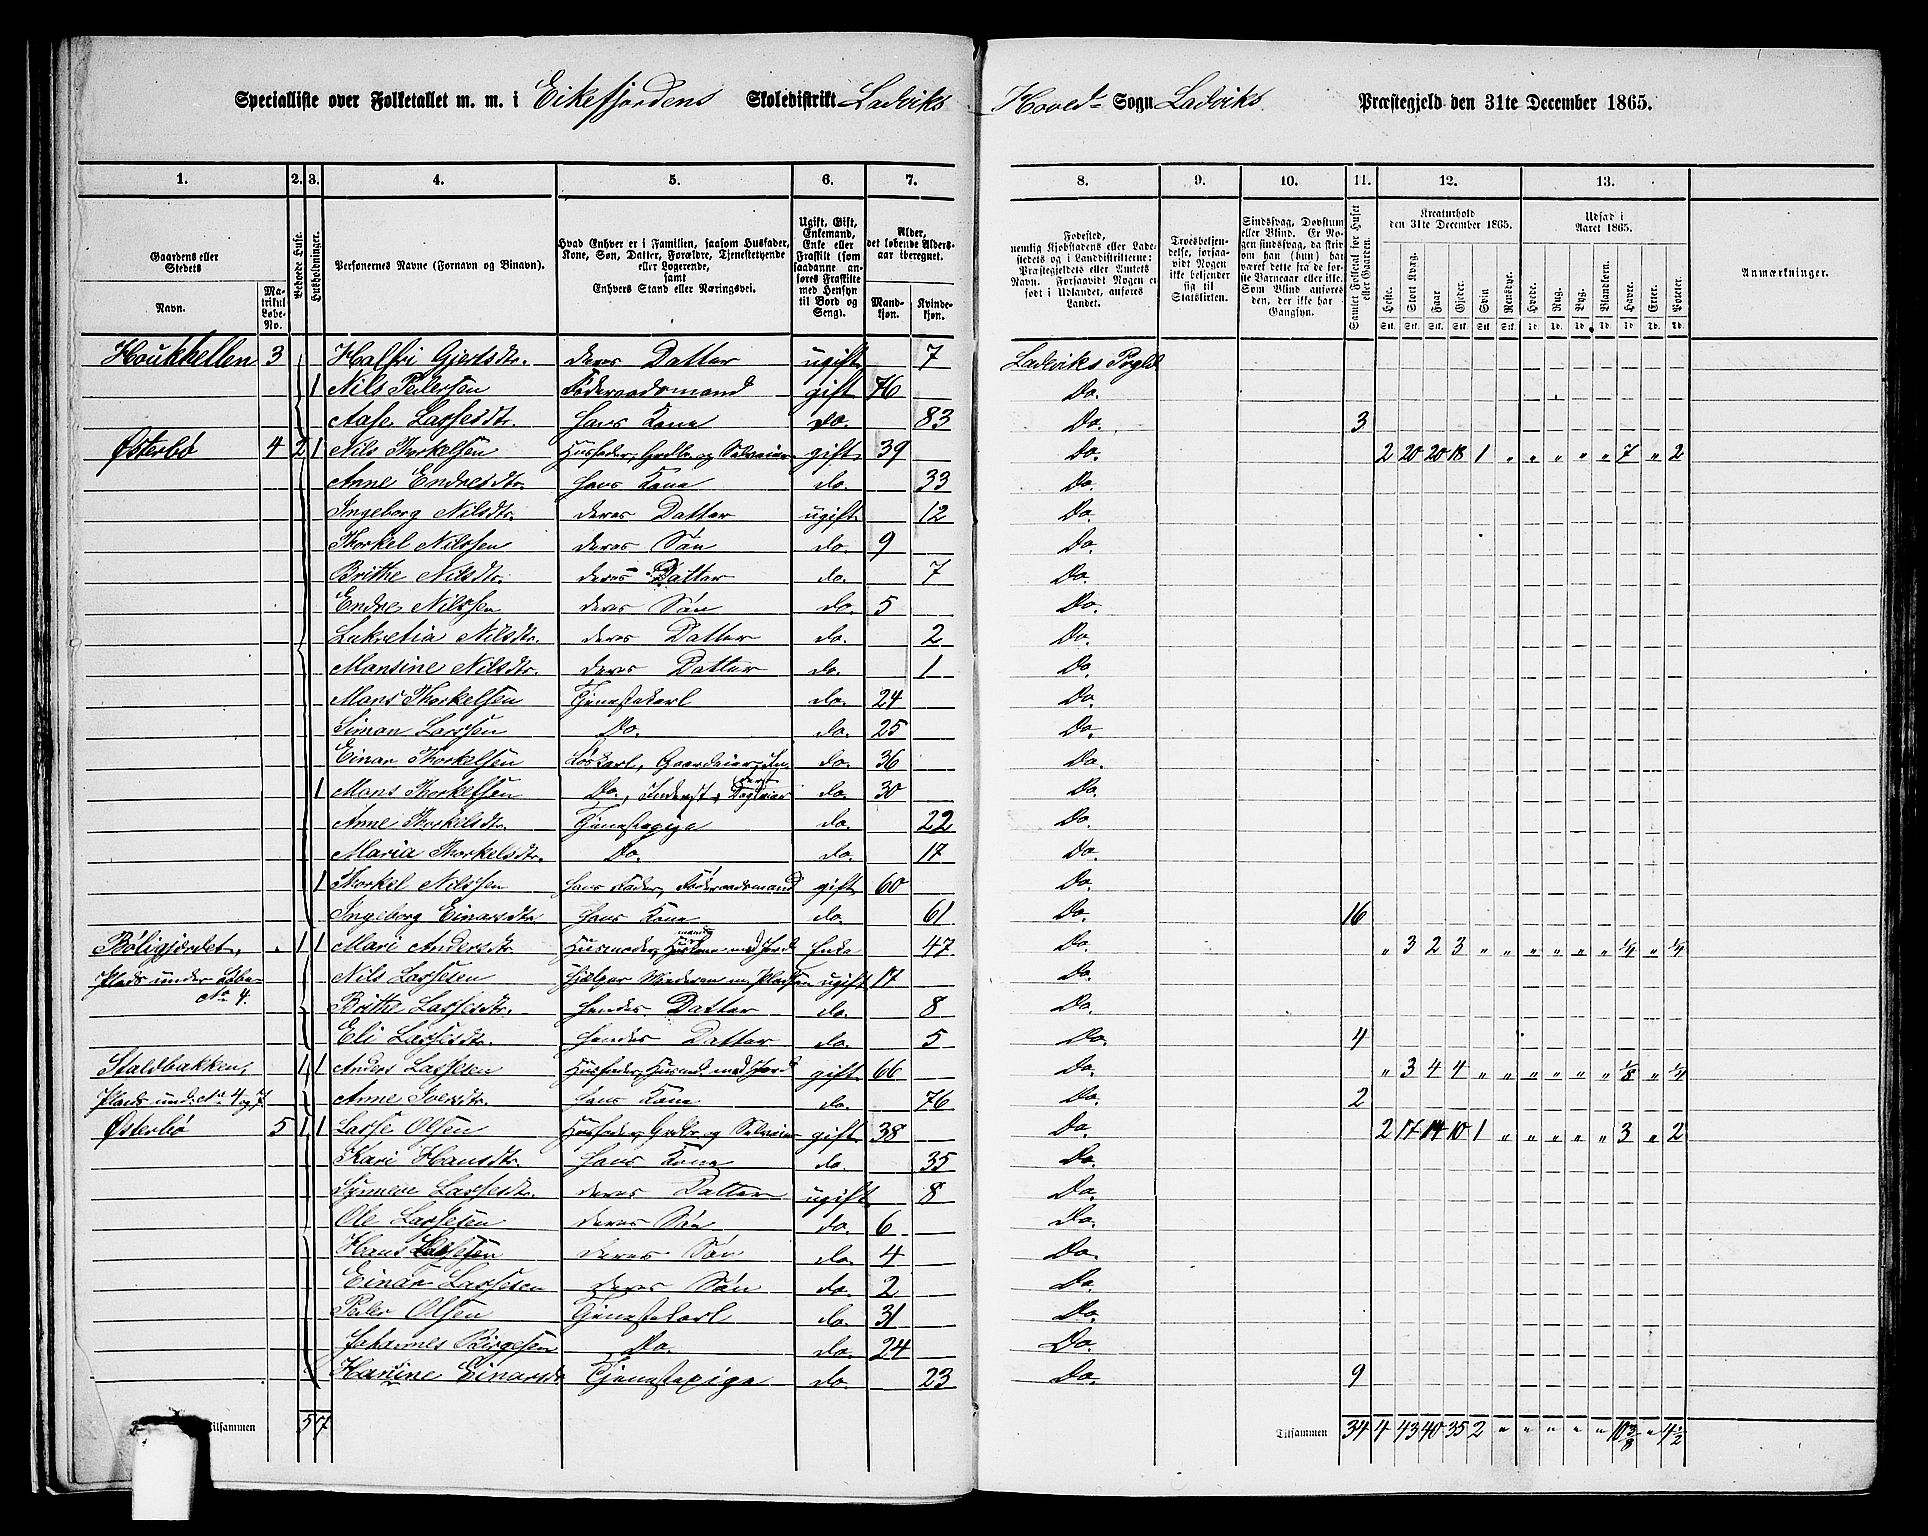 Specialliste over Folketallet m. m. i Eikefjordens Skoledistrikt Ladviks Hoved- Sogn Ladviks Præstegjeld den 31te December 1865.
1. 2. 3. 4. 5. 6. 7. 8. 9. 10. 11. 12. 13.
Gaardens eller Stedets
Navn.
Matrikul Løbe-No.
Beboede Huse.
Husholdninger.
Personernes Navne (Fornavn og Binavn).
Hvad Enhver er i Familien, saasom Husfader, Kone, Søn, Datter, Forældre, Tjenestetyende eller Logerende, samt Enhvers Stand eller Næringsvei.
Ugift, Gift, Enkemand, Enke eller Fraskilt (som saadanne anføres Fraskilte med Hensyn til Bord og Seng).
Alder, det løbende Alders-aar iberegnet.
Mandkjøn.
Kvindekjøn.
Fødested, nemlig Kjøbstadens eller Ladestedets og i Landdistrikterne: Præstegjeldets eller Amtets Navn. Forsaavidt Nogen er født i Udlandet, anføres Landet.
Troesbekjendelse, forsaavidt Nogen ikke bekjender sig til Statskirken.
Sindssvag, Døvstum eller Blind. Er Nogen sindssvag, da skrives om han (hun) har været dette fra de første Barneaar eller ikke. Som Blind anføres den, der ikke har Gangsyn.
Samlet Folketal for Huset eller Gaarden.
Kreaturhold den 31te December 1865.
Heste. Stort Kvæg. Faar. Gjeder. Svin. Rensdyr.
Udsæd i Aaret 1865.
Hvede. Rug. Byg. Blandkorn. Havre. Erter. Poteter.
Anmærkninger.
Houkkellen 3 Halfri Gjertsdtr. deres Datter ugift 7 Ladviks Prgld
1 Nils Pedersen Føderaadsmand gift 76 Do.
Aase Lassesdtr. hans Kone do. 83 Do. 3
Østerbø 4 2 1 Nils Thorkelsen Husfader, Grdbr. og Selveier gift 39 Do. 2 20 20 18 1 " " " " " 7 " 2
Anne Endresdtr. hans Kone do. 33 Do.
Ingeborg Nilsdtr. deres Datter ugift 12 Do.
Thorkel Nilssen deres Søn do. 9 Do.
Brithe Nilsdtr. deres Datter do. 7 Do.
Endre Nilssen deres Søn do. 5 Do.
Lukretia Nilsdtr. deres Datter do. 2 Do.
Mansine Nilsdtr. deres Datter do. 1 Do.
Mons Thorkelsen Tjenestekarl do. 24 Do.
Simon Larssen Do. do. 25 Do.
Einar Thorkelsen Løskarl, Gaardeier do. 36 Do.
1 Mons Thorkelsen Do., Inderst, do. 30 Do.
Anne Thorkelsdtr. Tjenestepige do. 22 Do.
Maria Thorkelsdtr. Do. do. 17 Do.
1 Thorkel Nilssen hans Fader, Føderaadsmand gift 60 Do.
Ingeborg Einarsdtr hans Kone do. 61 Do. 16
Bøligjærdet, . 1 1 Mari Andersdtr. Husmoder, med Jord Enke 47 Do. " 3 2 3 " " " " " " 1/4 " 1/4
Plads under Løbe- Nils Lassesen hjælper Moderen m. Pladsen ugift 17 Do.
No 4. Brithe Lassesdtr. hendes Datter do. 8 Do.
Eli Lassesdtr. hendes Datter do. 5 Do. 4
Staldbakken, 1 1 Anders Lassesen Husfader, Husmd. med Jord gift 66 Do. " 3 4 4 " " " " " " 1/8 " 1/4
Plads und. No 4 og 7 Anne Iversdtr. hans Kone do. 76 Do. 2
Østerbø 5 1 1 Lasse Olsen Husfader, Grdbr. og Selveier gift 38 Do. 2 17 14 10 1 " " " " " 3 " 2
Kari Hansdtr. hans Kone do. 35 Do.
Synneve Lassesdtr. deres Datter ugift 8 Do.
Ole Lassesen deres Søn do. 6 Do.
Hans Lassesen deres Søn do. 4 Do.
Einar Lassesen deres Søn do. 2 Do.
Peder Olsen Tjenestekarl do. 31 Do.
Johannes Birgesen Do. do. 24 Do.
Hansine Einarsdtr Tjenestepige do. 23 Do. 9
Tilsammen 5 7 Tilsammen 34 4 43 40 35 2 " " " " " 10 3/8 " 4 1/2